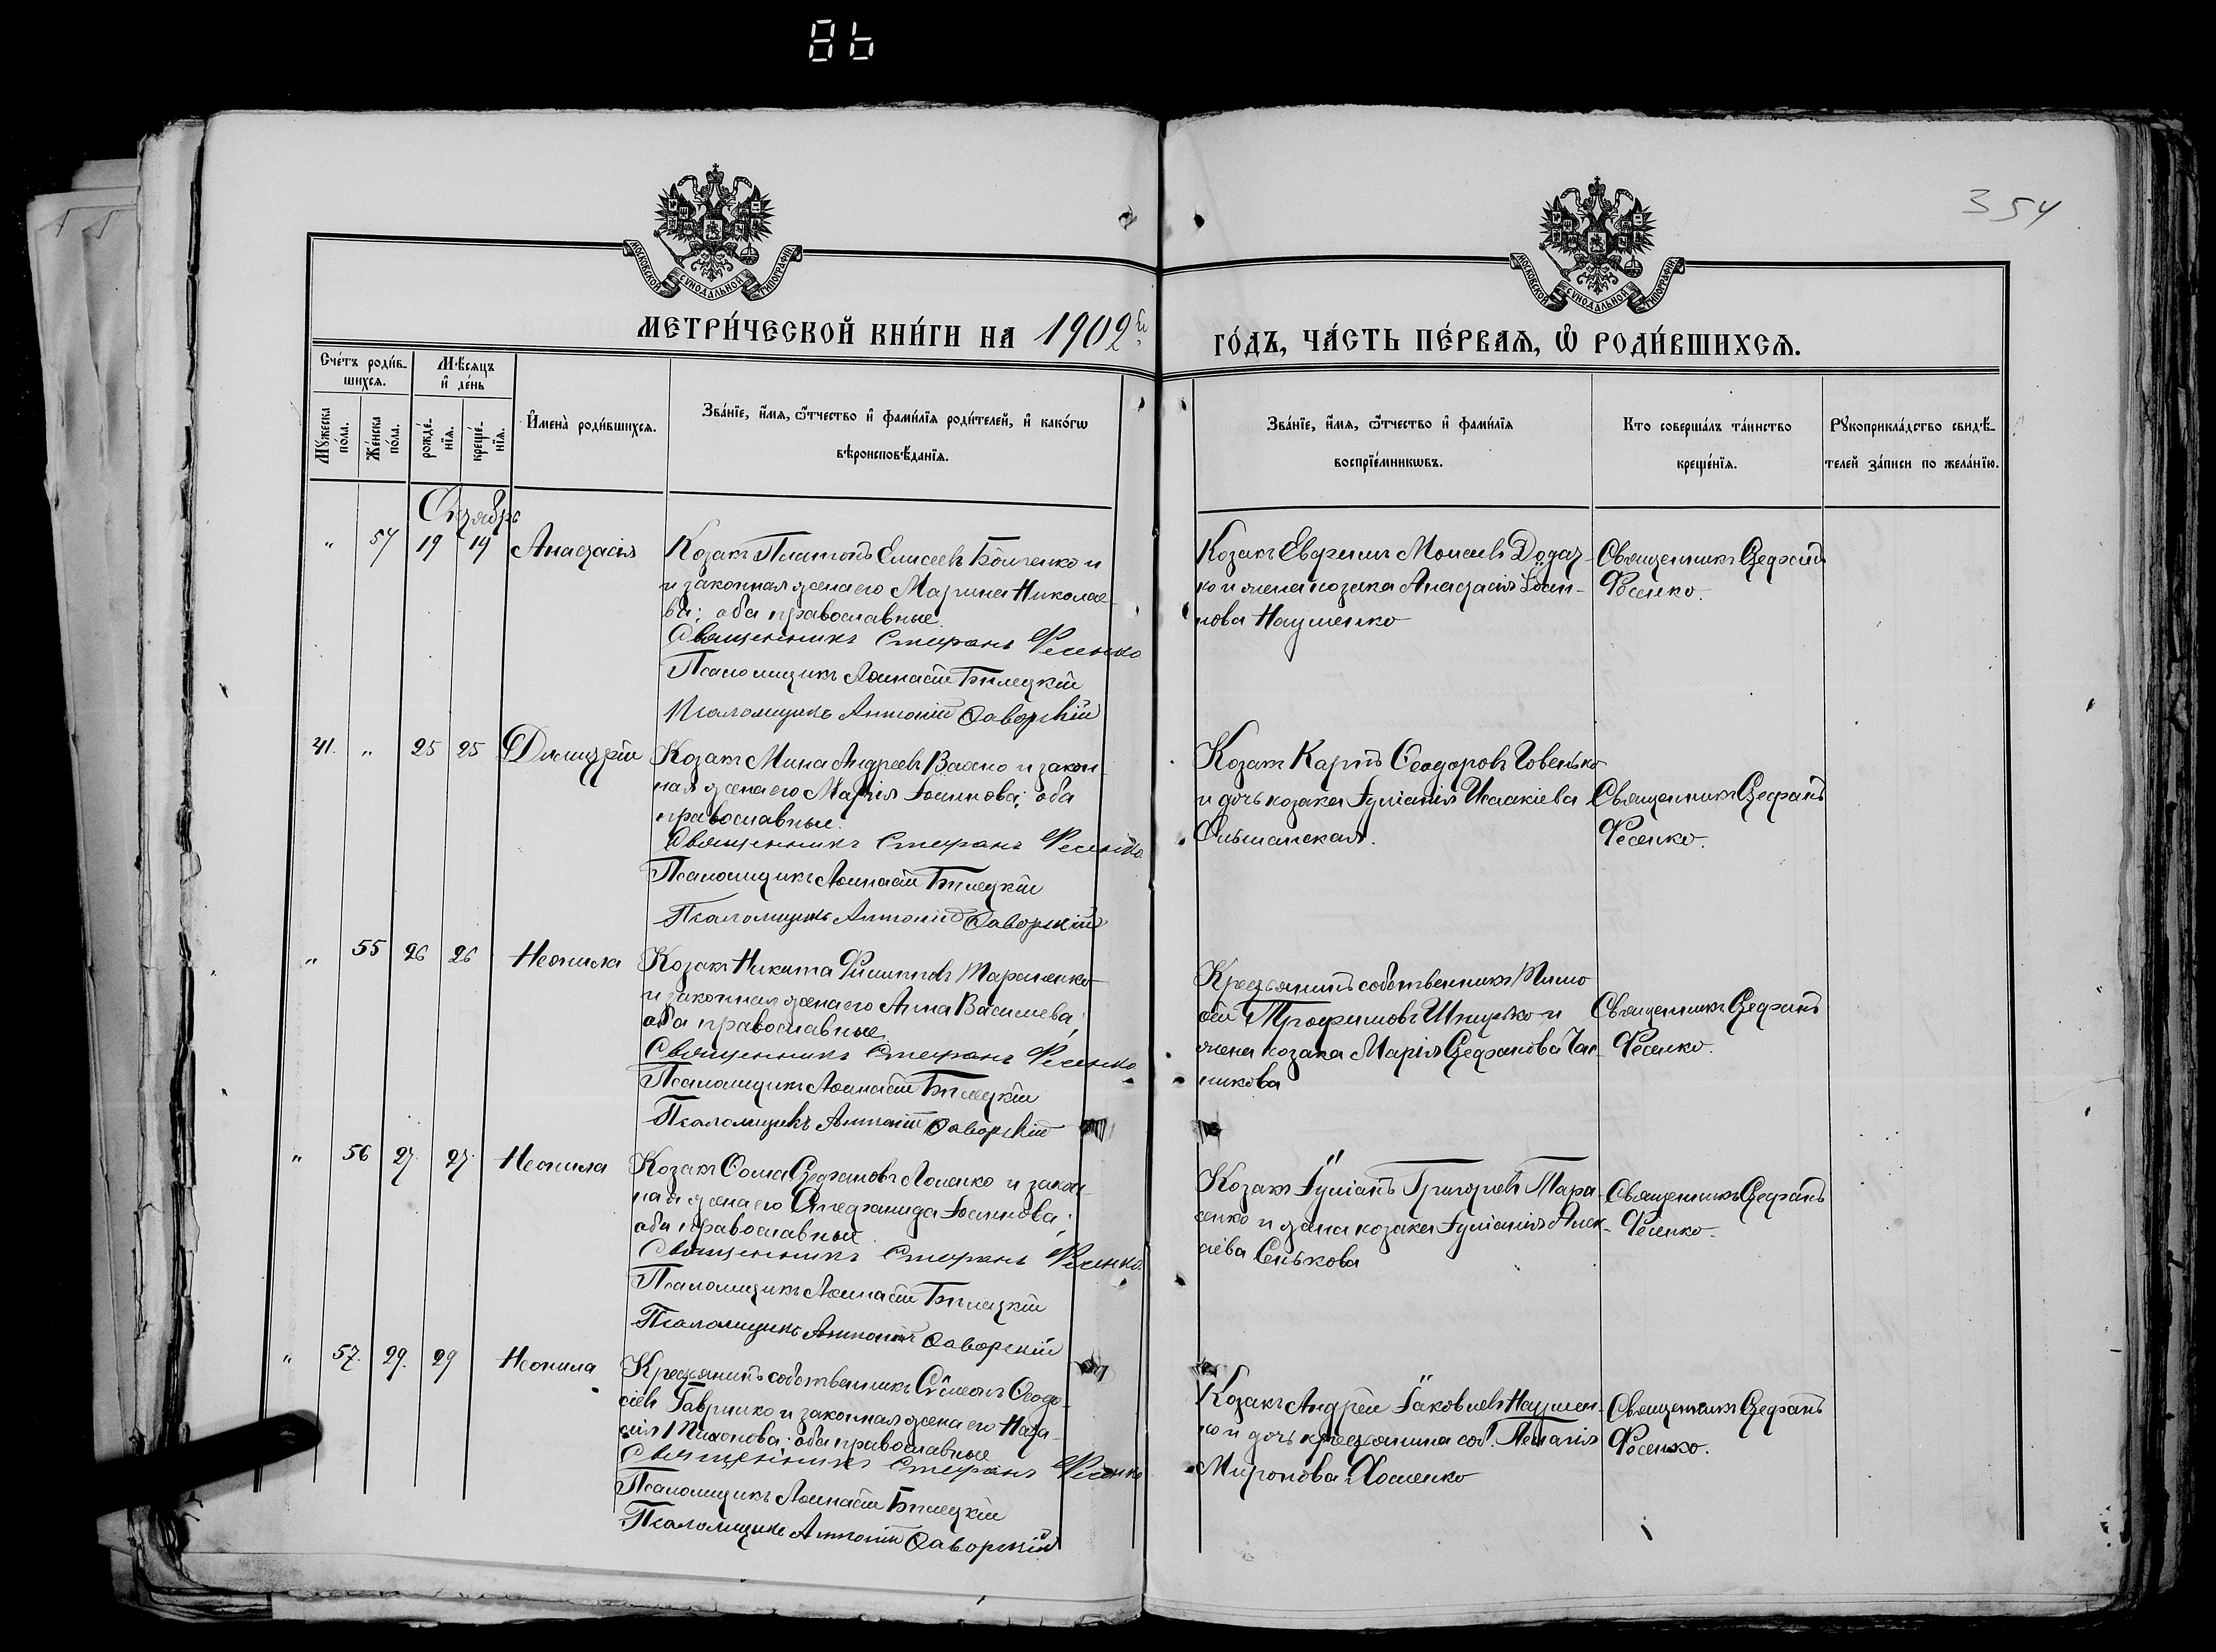 86
354
МОСКОВСКОЙ СѴНОДАЛЬНОЙ ТИПОГРАФІИ
МОСКОВСКОЙ СѴНОДАЛЬНОЙ ТИПОГРАФІИ
МЕТРИ́ЧЕСКОЙ КНИ́ГИ НА 1902й
ГО́ДЪ, ЧА́СТЬ ПЕ́РВАѦ, Ѽ РОДИ́ВШИХСѦ.
Сче́тъ роди́в-
шихсѧ.
Мѣ́сѧцъ
и҆ де́нь
Мꙋ́жеска
по́ла.
Же́нска
по́ла.
рожде́-
нїѧ.
креще́-
нїѧ.
И҆мена̀ роди́вшихсѧ.
Зва́нїе, и҆́мѧ, ѻ҆́тчество и҆ фами́лїѧ роди́телей, и҆ како́гѡ
вѣроисповѣ́данїѧ.
Зва́нїе, и҆́мѧ, ѻ҆́тчество и҆ фами́лїѧ
воспрїе́мникѡвъ.
Кто соверша́лъ та́инство
креще́нїѧ.
Рꙋкоприкла́дство свидѣ́-
телей за́писи по жела́нїю.
Октябрь
" 54 19 19 Анастасія
Козакъ Платонъ Елисеевъ и
и законная жена его Марина Николае-
ва; оба православные.
Священникъ Стефанъ Фесенко
Псаломщикъ Аѳанасій Билецкій
Псаломщикъ Антоній Яворскій
Козакъ Евфимій Моисеевъ
ко и жена козака Анастасія Іоан-
нова Науменко
Священникъ Стефанъ
Фесенко.
41. " 25 25 Димитрій
Козакъ Мина Андреевъ Важно и закон-
ная жена его Марія Іоаннова; оба
православные.
Священникъ Стефанъ Фесенко
Псаломщикъ Аѳанасій Билецкій
Псаломщикъ Антоній Яворскій
Козакъ Карпъ Ѳеодоровъ
и дочь козака Іуліанія Исакіева
Ольшанская.
Священникъ Стефанъ
Фесенко.
" 55 26 26 Неонила
Козакъ Никита Филипповъ Тараненко
и законная жена его Анна Васильева;
оба православные.
Священникъ Стефанъ Фесенко
Псаломщикъ Аѳанасій Билецкій
Псаломщикъ Антоній Яворскій
Крестьянинъ собственникъ Тимо-
ѳей Трофимовъ и
жена козака Марія Стефанова
никова
Священникъ Стефанъ
Фесенко.
" 56 27. 27. Неонила
Козакъ Ѳома Стефановъ и закон-
ная жена его Степанида Іоаннова;
оба православные.
Священникъ Стефанъ Фесенко
Псаломщикъ Аѳанасій Билецкій
Псаломщикъ Антоній Яворскій
Козакъ Іуліанъ Григорьевъ Тара-
сенко и жена козака Іуліанія Алек-
сіева Сенькова
Священникъ Стефанъ
Фесенко.
" 57. 29. 29 Неонила
Крестьянинъ собственникъ Сѵмеонъ Ѳеодо-
сіевъ Гаврилко и законная жена его Ната-
лія Тихонова; оба православные
Священникъ Стефанъ Фесенко
Псаломщикъ Аѳанасій Билецкій
Псаломщикъ Антоній Яворскій
Козакъ Андрей Іаковлевъ Наумен-
ко и дочь крестьянина соб. Пелагія
Миронова Хоменко
Священникъ Стефанъ
Фесенко.